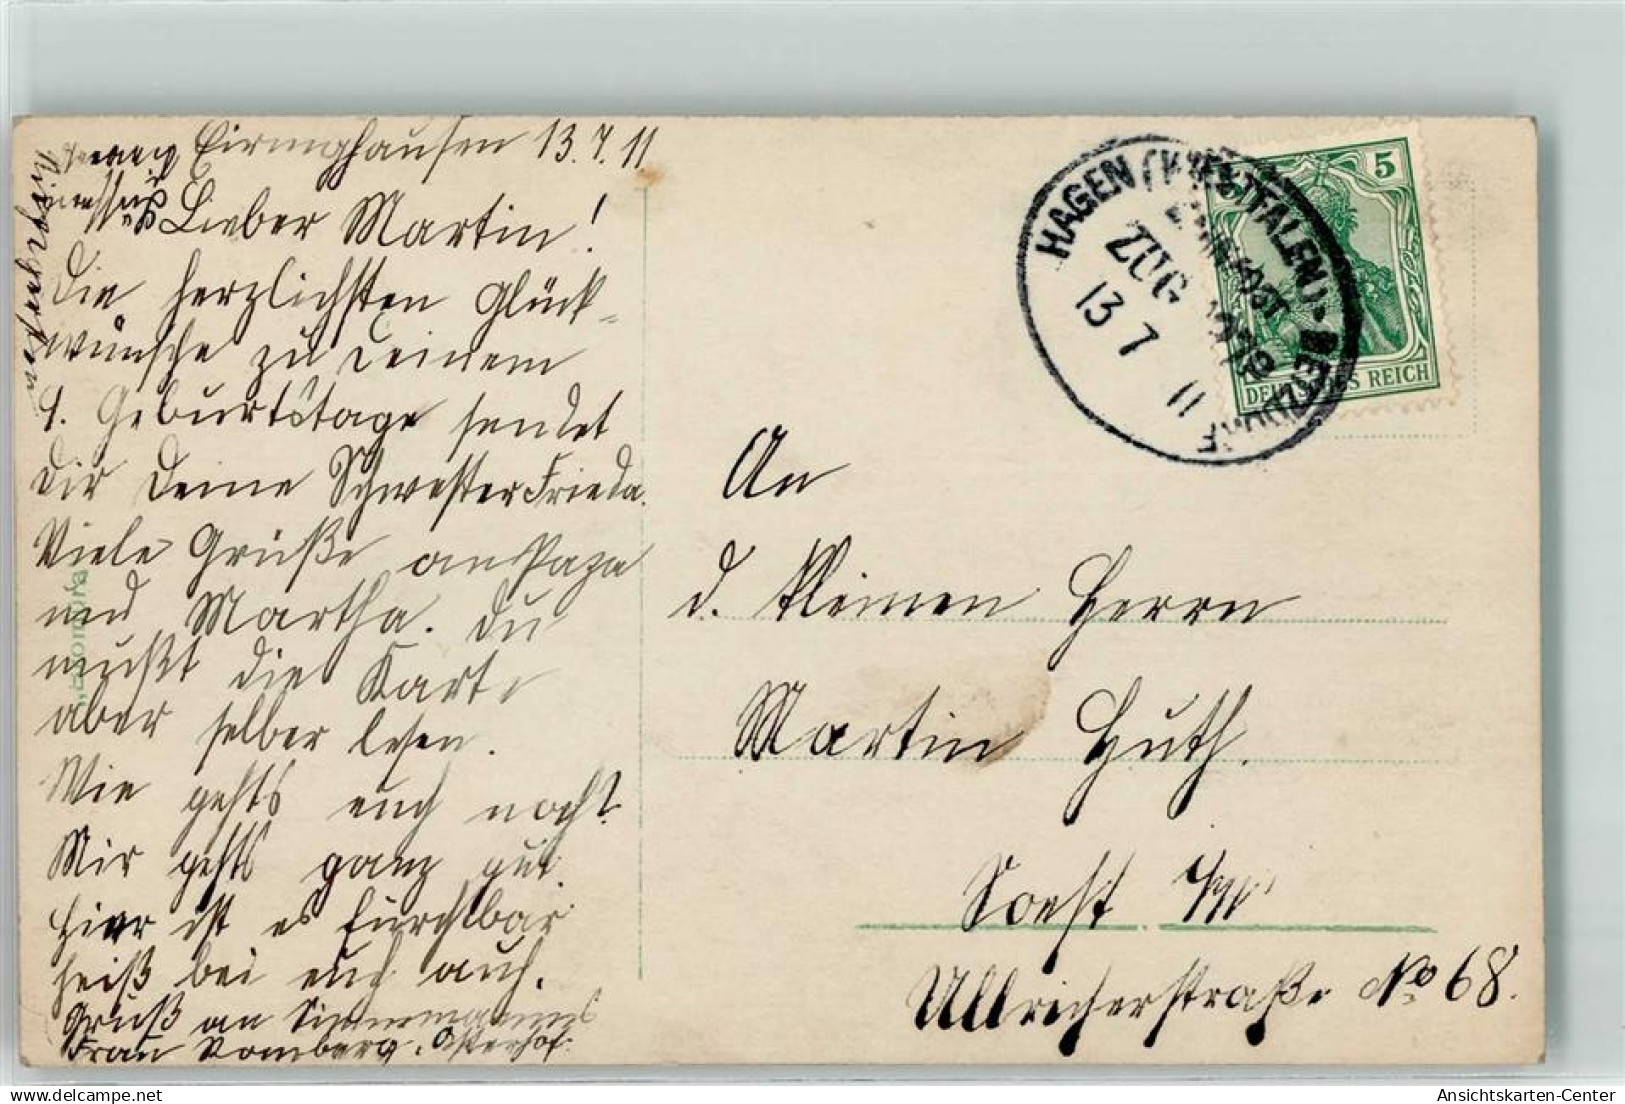 Eiringhausen 13.7.11
Lieber Martin!
Die herzlichsten Glück-
wünsche zu Deinem
9. Geburtstage sendet
Dir Deine Schwester Frieda.
Viele Grüße an Papa
und Martha. Du
mußt die Karte
aber selber lesen.
Wie gehts euch noch?
Mir gehts ganz gut.
Hier ist es furchtbar
heiß bei euch auch.
Gruß an
Frau Romberg. Osterhof.
HAGEN (WESTFALEN)-BETZDORF
BAHNPOST
ZUG
13 7 11
5
DEUTSCHES REICH
An
d. kleinen Herrn
Martin Huth.
Soest i/W
Ullricherstraße No 68.
Ansichtskarten-Center